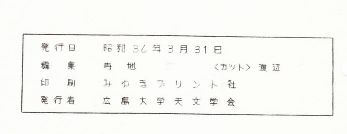 発行日 昭和36年3月31日
編集 再地 〈カット〉渡辺
印刷 みゆきプリント社
発行者 広島大学天文学会